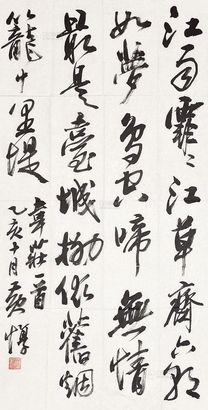 江雨霏〻江草齊六朝
如夢鳥空啼無情
最是臺城柳依舊烟
籠十里堤
韋莊一首
乙亥十月黃惇